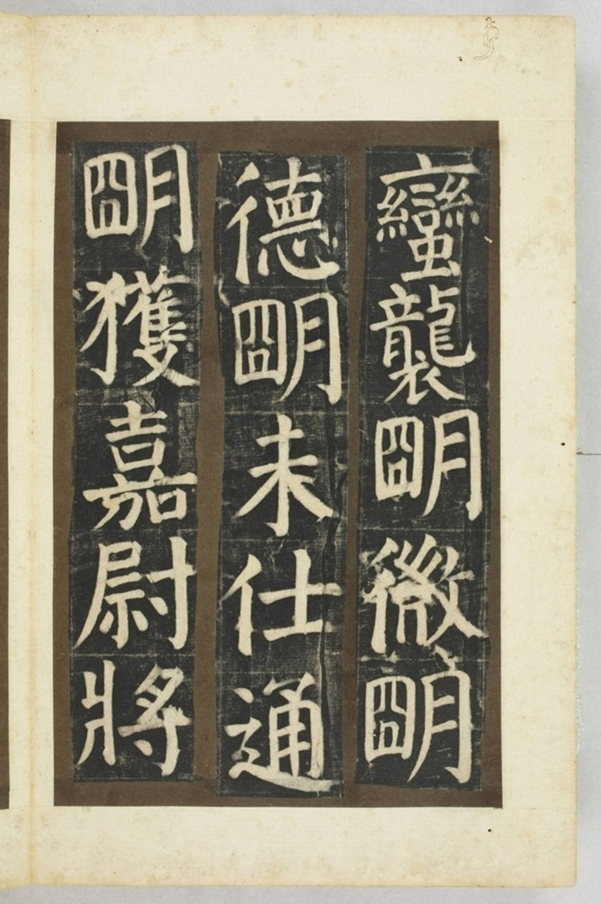 蠻襲朙微朙
德朙未仕通
朙獲嘉尉將